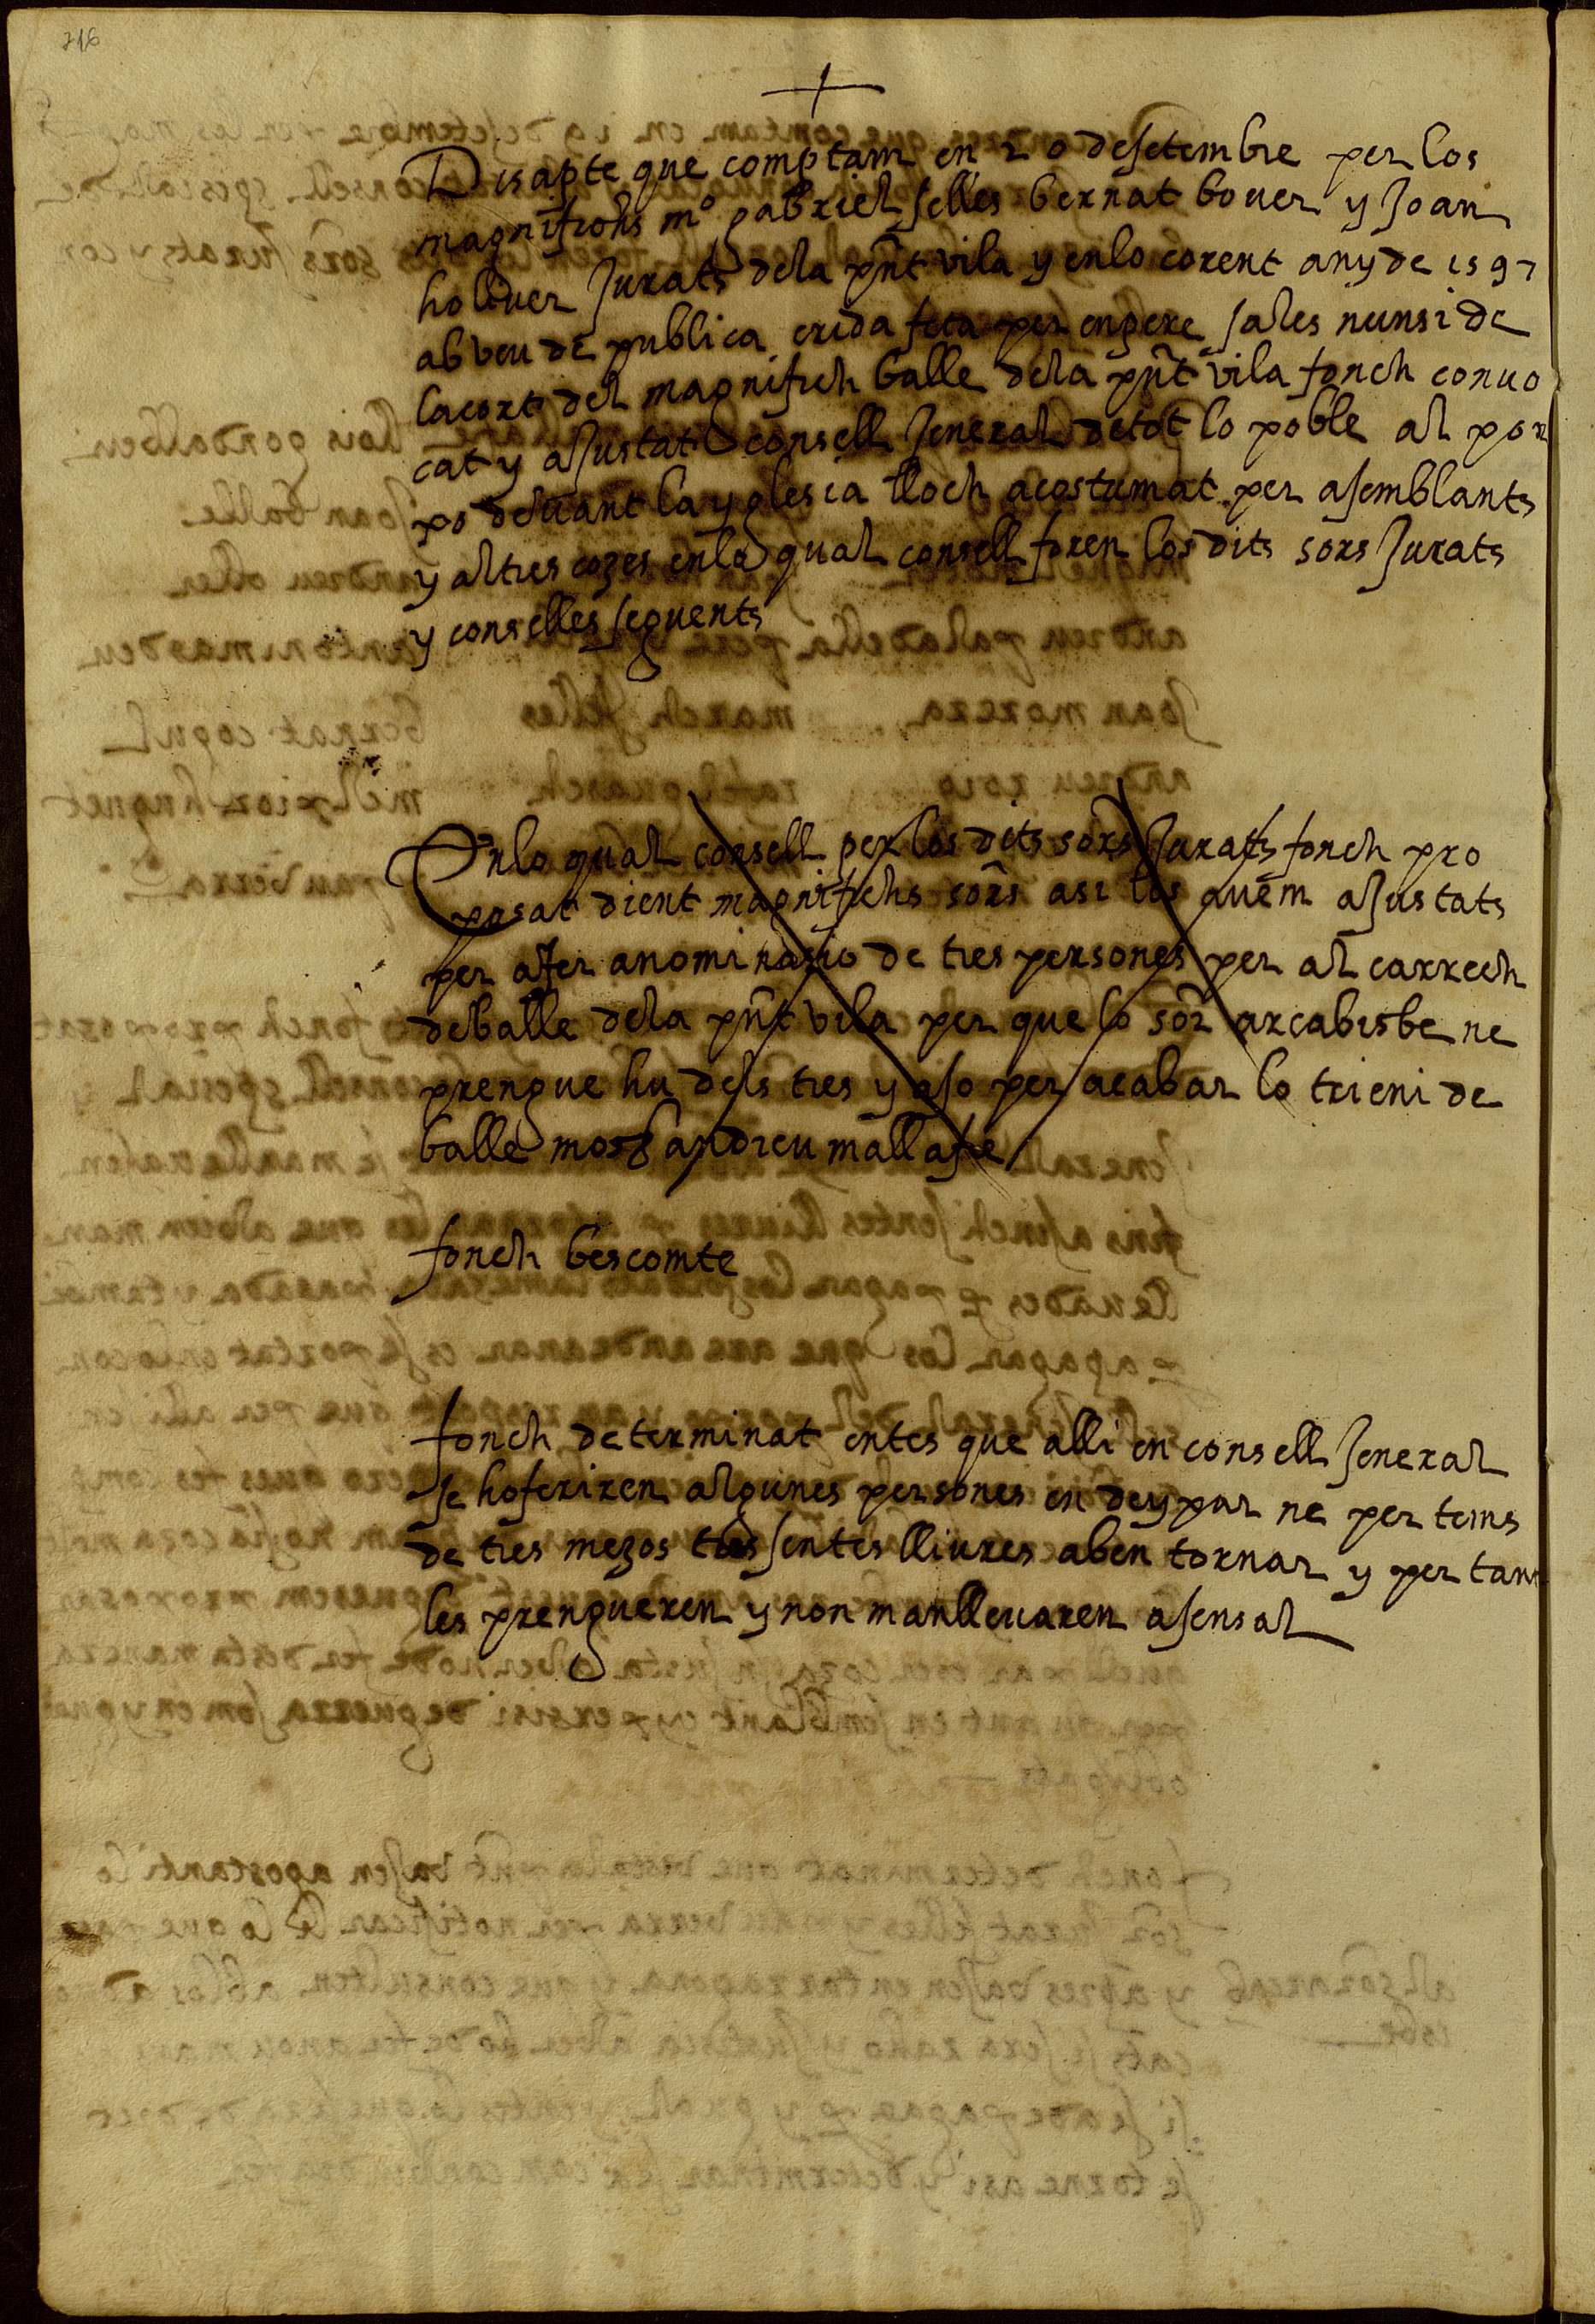 216
Disapte que comptam en 20 de setembre per los
magnifichs mº gabriel selles bernat bover y Joan
holiver Jurats dela pñt vila y enlo corent any de 1597
ab veu de publica crida feta per enpere sales nunsi de
lacort del magnifich balle dela pñt vila fonch convo
cat y aJustat consell Jeneral de tot lo poble al por
xo devant la yglesia lloch acostumat per asemblants
y altres cozes enlo qual consell foren los dits sors Jurats
y conselles seguents
Enlo qual consell per los dits sors Jurats fonch pro
posat dient magnifichs sors asi los avem aJustats
per afer anominasio de tres persones per al carrech
de balle dela pñt vila per que lo sor arcabisbe ne
prengue hu dels tres y aso per acabar lo trieni de
balle mosf andreu mallafre
fonch bescomte
fonch determinat entes que alli en consell Jeneral
se hoferiren algunes persones en deypar ne per tems
de tres mezos tres sentes lliures aben tornar y per tant
les prengueren y non manllevaren asensal